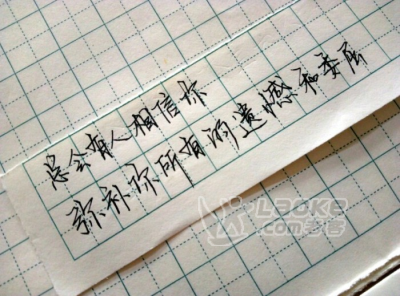 总会有人相信你
弥补你所有的遗憾和委屈
Laoke.com